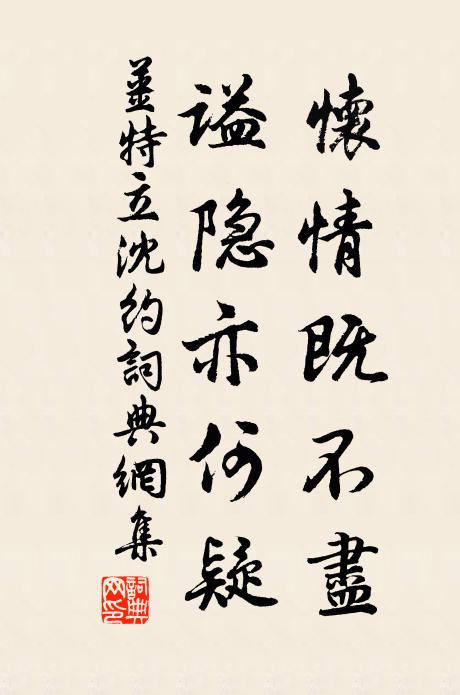 懷情既不盡
謚隐亦何疑
姜特立沈約詞典網集
詞典网印